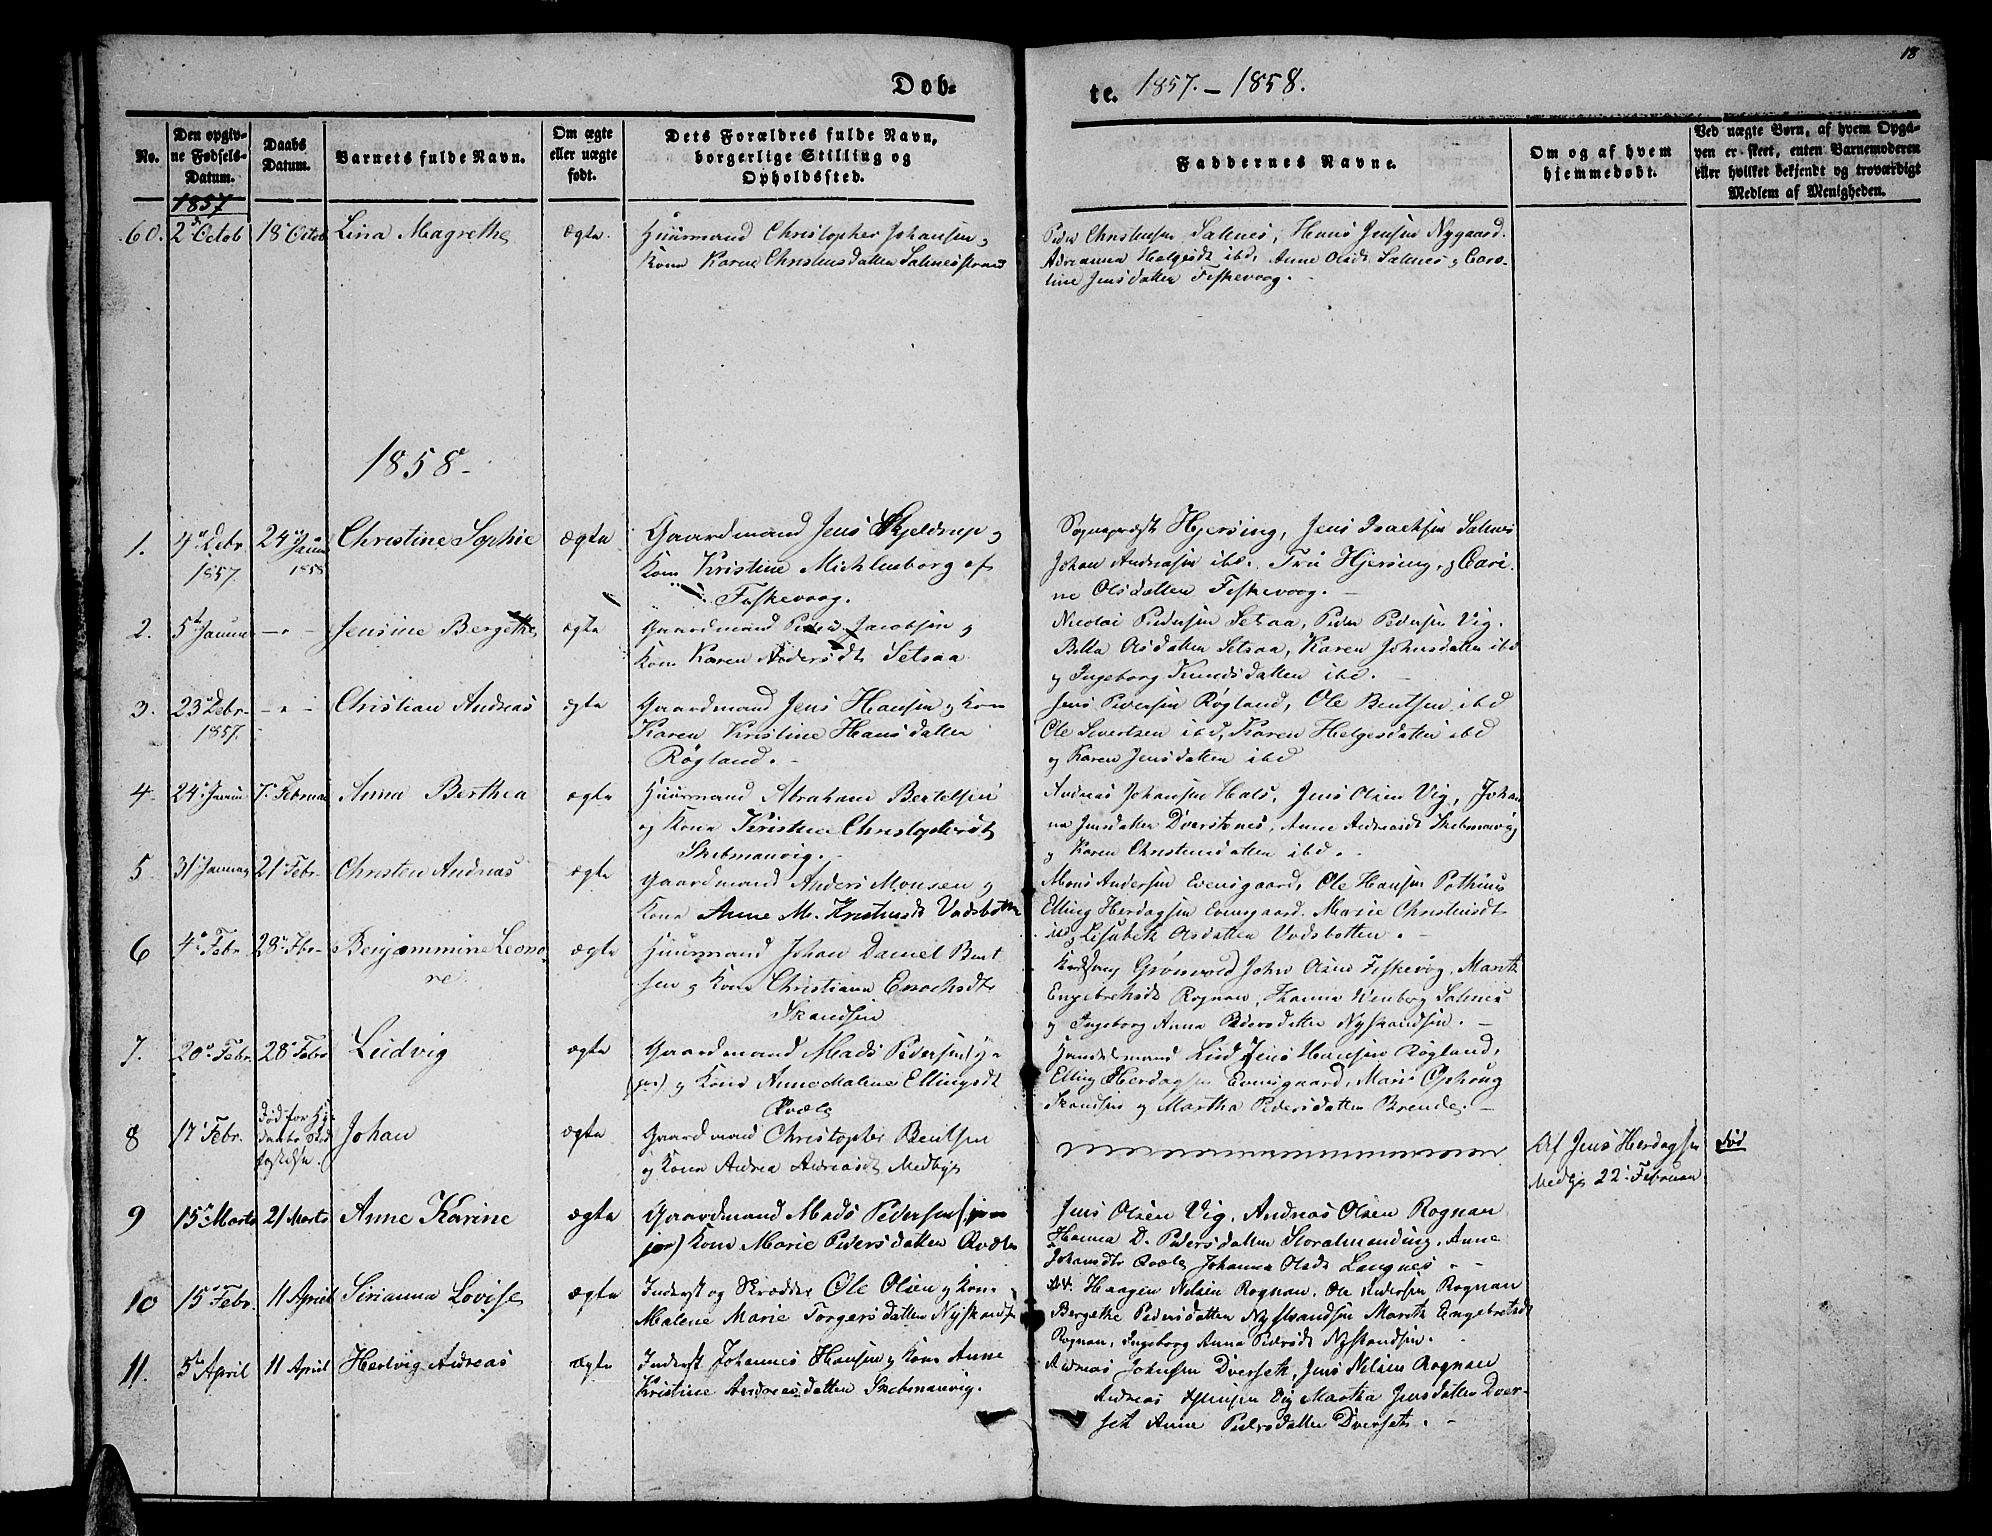 18
Døb-
te. 1857. – 1858.
No.
Den opgiv-
ne Fødsels-
Datum.
Daabs
Datum.
Barnets fulde Navn.
Om ægte
eller uægte
født.
Dets Forældres fulde Navn,
borgerlige Stilling og
Opholdssted.
Faddernes Navne.
Om og af hvem
hjemmedøbt.
Ved uægte Børn, af hvem Opga-
ven er skeet, enten Barnemoderen
eller hvilket bekjendt og troværdigt
Medlem af Menigheden.
1857
60. 2 Octob 18 Octob Lina Magrethe ægte Huusmand Christopher Johansen og
Kone Karen Christensdatter Salnesstrand
Peder Christensen Salnes, Hans Jensen Nygaard.
Adrianna Helgesdt ibd, Anne Olsdt Salnes og Caro-
line Jensdatter Feskevaag.
1858
1. 4 Debr 1857 24 Janu 1858 Christine Sophie ægte Gaardmand Jens Skjeldrup og
Kone Kristine Michlenborg af
Feskevaag.
Sognepræst Hjersing, Jens Isachsen Salnes
Johan Andreasen ibd. Fru Hjersing, og Cari-
ne Olsdatter Feskevaag.
2. 5 Januar — " — Jensine Bergethe ægte Gaardmand Peder Jacobsen og
Kone Karen Andersdt Setsaa
Nicolai Pedersen Setsaa, Peder Pedersen Vig.
Betta Olsdatter Setsaa, Karen Johnsdatter ibd
og Ingeborg Knudsdatter ibd.
3. 23 Debr 1857. — " — Christian Andreas ægte Gaardmand Jens Hansen og Kone
Karen Kristine Hansdatter
Røgland.
Jens Pedersen Røgland, Ole Bentsen ibd
Ole Sivertsen ibd, Karen Helgesdatter ibd
og Karen Jensdatter ibd
4. 24 Janu 7 Februar Anna Berthea ægte Huusmand Abraham Bertelsen
og Kone Kristina Christophersdt
Skebmanvig.
Andreas Johansen Hals, Jens Olsen Vig, Johan
na Jensdatter Dverstenes, Anne Andreasdt Skebmanvig
og Karen Christensdatter ibd.
5. 31 Januar 21 Febr Christen Andreas ægte Gaardmand Anders Monsen og
Kone Anne M. Kristensdt Vadsbotten
Mons Andersen Evensgaard, Ole Hansen Pothus
Elling Herdagsen Evensgaard. Marie Christensdt
ibd og Lisabeth Olsdatter Vadsbotten.
6 4 Febr 28 Febr Benjammine Leono-
re. ægte Huusmand Johan Daniel Bent
sen og Kone Christiana Enochsdt
Strandsen
Grønvold John Olsen Feskevog, Marith
Engebretsdt Rognan, Hanna Salnes
og Ingeborg Anna Pedersdatter Nystrandsen.
7. 20 Febr 28 Febr Ludvig ægte Gaardmand Mads Pedersen (yn
gre) og Kone Anne Malene Ellingsdt
Qvæle
Handelsmand Jens Hansen Røgland,
Elling Herdagsen Evensgaard, Maris
Strandsen og Martha Pedersdatter Brende.
8 17 Febr. Død før Hj.
Johan ægte Gaardmand Christopher Bentsen
og Kone Andrea Andreasdt Medbye
Af Jens Herdagsen
Medbye 22 Februar
død
9 15 Marts 21 Marts Anne Karine ægte Gaardmand Mads Pedersen
Kone Marie Pedersdatter Qvæle
Jens Olsen Vig, Andreas Olsen Rognan
Hanna D. Pedersdatter Storalmending, Anne
Johansdtr Qvæle, Johanna Olsdt Langnes
10 15 Febr. 11 April Sirianna Lovise ægte Inderst og Skrædder Ole Olsen og Kone
Malene Marie Torgersdatter Nystrandsen
Haagen Nilsen Rognan, Ole Pedersen Rognan
Bergethe Pedersdatter Nystrandsen Marith Engebretsdt
Rognan, Ingeborg Anna Pedersdt Nystrandsen.
11. 5 April 11 April Hertvig Andreas ægte Inderst Johannes Hansen og Kone Anne
Kristine Andreasdatter Skebmanvig.
Andreas Johnsen Dverseth, Jens Nilsen Rognan
Andreas Jensen Vig Martha Jensdatter Dver-
seth Anne Pedersdatter Dverseth.